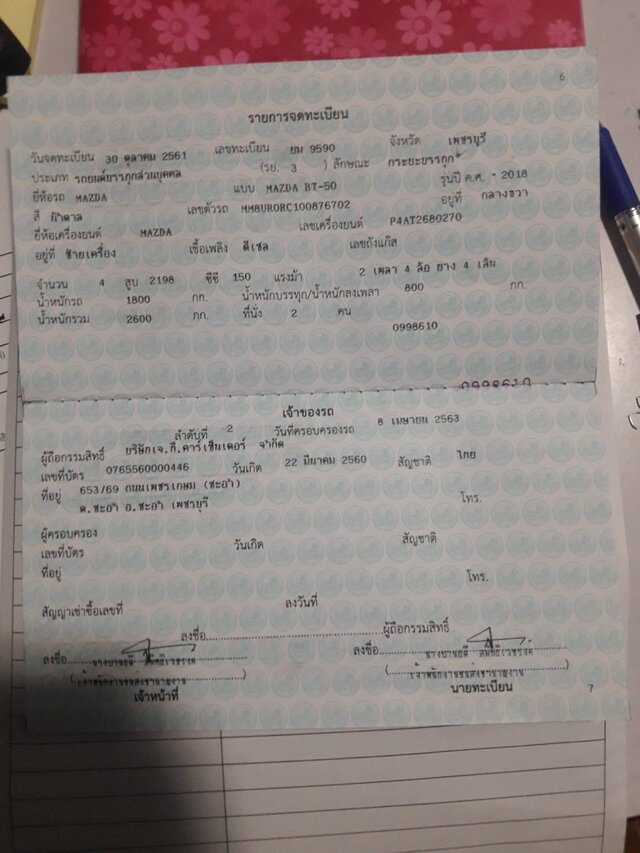 6
รายการจดทะเบียน
วันจดทะเบียน 30 ตุลาคม 2561 เลขทะเบียน ยม 9590 จังหวัด เพชรบุรี
ประเภท รถยนต์บรรทุกส่วนบุคคล (รย. 3 ) ลักษณะ กระบะบรรทุก
ยี่ห้อรถ MAZDA แบบ MAZDA BT-50 รุ่นปี ค.ศ. - 2018
สี น้ำตาล เลขตัวรถ MM8UR0RC100876702 อยู่ที่ กลางขวา
ยี่ห้อเครื่องยนต์ MAZDA เลขเครื่องยนต์ P4AT2680270
อยู่ที่ ซ้ายเครื่อง เชื้อเพลิง ดีเซล เลขถังแก๊ส
จำนวน 4 สูบ 2198 ซีซี 150 แรงม้า 2 เพลา 4 ล้อ ยาง 4 เส้น
น้ำหนักรถ 1800 กก. น้ำหนักบรรทุก/น้ำหนักลงเพลา 800 กก.
น้ำหนักรวม 2600 กก. ที่นั่ง 2 คน
0998610
0998610
เจ้าของรถ
ลำดับที่ 2 วันที่ครอบครองรถ 8 เมษายน 2563
ผู้ถือกรรมสิทธิ์ บริษัทเจ.กี.คาร์เซ็นเตอร์ จำกัด
เลขที่บัตร 0765560000446 วันเกิด 22 มีนาคม 2560 สัญชาติ ไทย
ที่อยู่ 653/69 ถนนเพชรเกษม (ชะอำ)
ต.ชะอำ อ.ชะอำ เพชรบุรี โทร.
ผู้ครอบครอง
เลขที่บัตร วันเกิด สัญชาติ
ที่อยู่ โทร.
สัญญาเช่าซื้อเลขที่ ลงวันที่
ลงชื่อ ผู้ถือกรรมสิทธิ์
ลงชื่อ ลงชื่อ
(เจ้าพนักงานขนส่งชำนาญงาน) (เจ้าพนักงานขนส่งชำนาญงาน)
เจ้าหน้าที่ นายทะเบียน
7